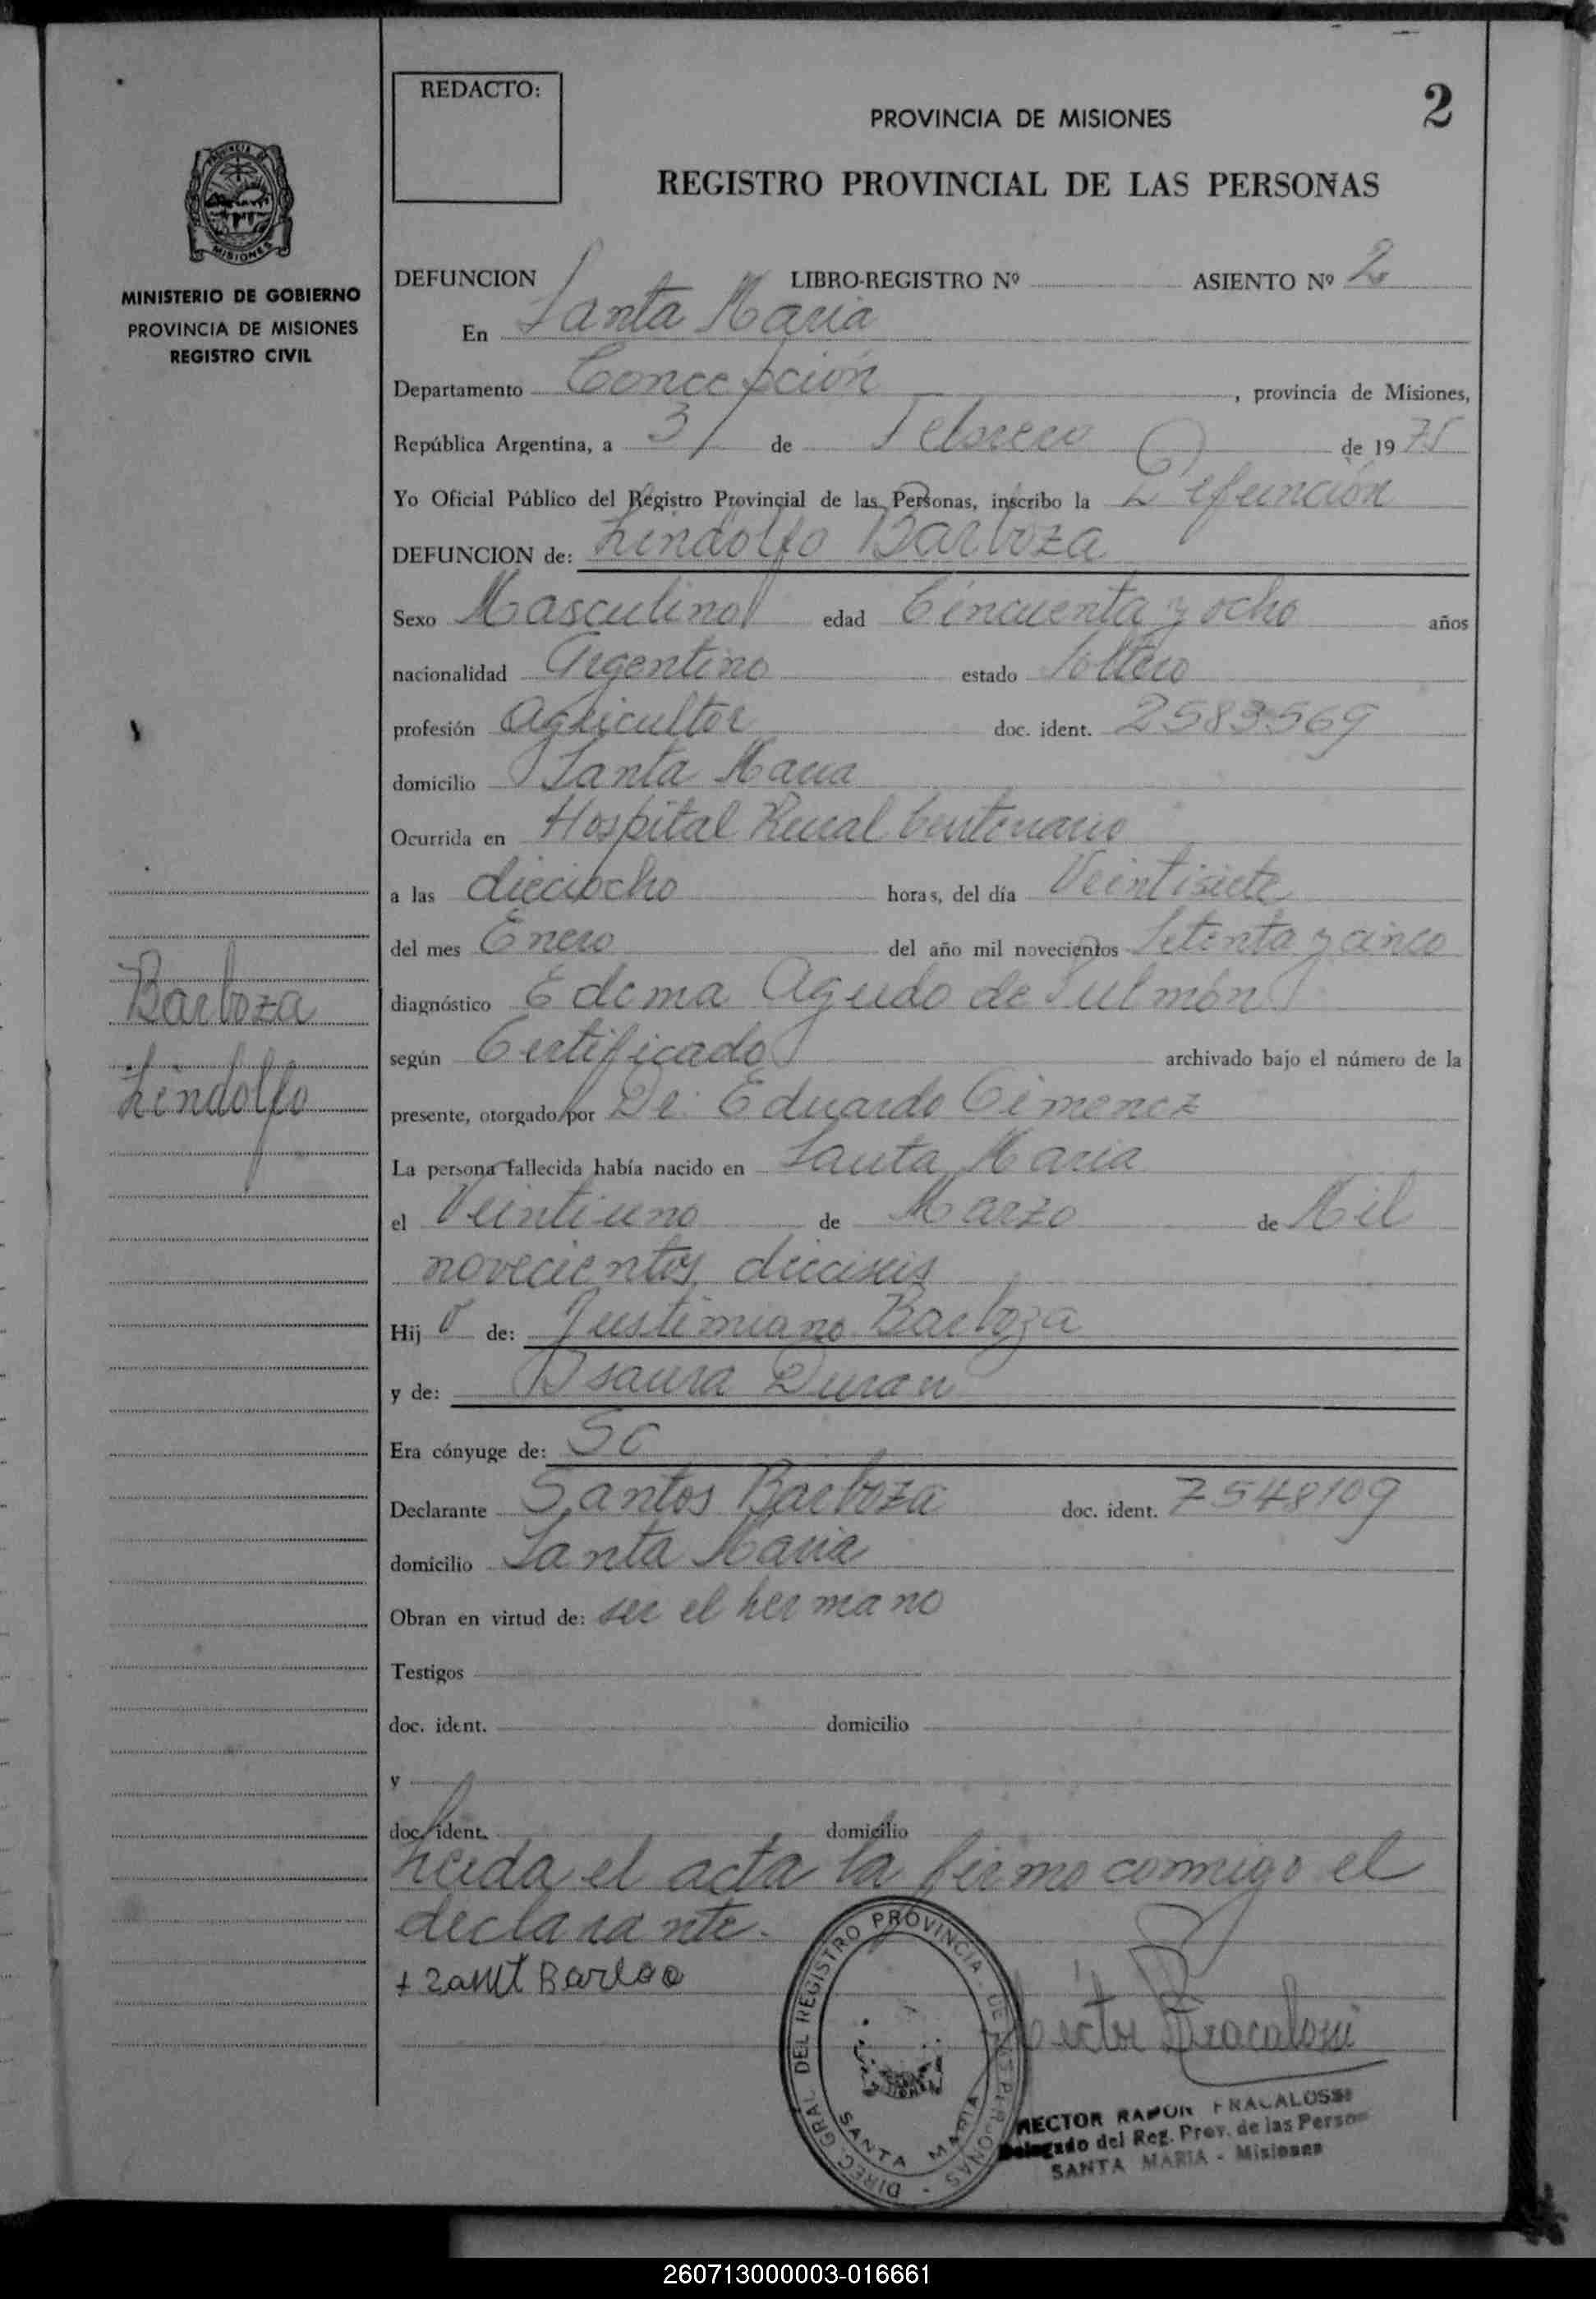 REDACTO:
2
PROVINCIA DE MISIONES
REGISTRO PROVINCIAL DE LAS PERSONAS
PROVINCIA DE
MISIONES
MINISTERIO DE GOBIERNO
PROVINCIA DE MISIONES
REGISTRO CIVIL
DEFUNCION LIBRO-REGISTRO Nº ASIENTO Nº 2
En Santa Maria
Departamento Concepción, provincia de Misiones,
República Argentina, a 3/ de Febrero de 1975
Yo Oficial Público del Registro Provincial de las Personas, inscribo la Defunción
DEFUNCION de: Lindolfo Barboza
Sexo Masculino edad Cincuenta y ocho años
nacionalidad Argentino estado Soltero
profesión Agricultor doc. ident. 2583569
domicilio Santa Maria
Ocurrida en Hospital Rural Centenario
a las dieciocho horas, del día Veintisiete
del mes Enero del año mil novecientos Setenta y cinco
diagnóstico Edema Agudo de Pulmón
según Certificado archivado bajo el número de la
presente, otorgado por Dr. Eduardo Gimenez
La persona fallecida había nacido en Santa Maria
el Veintiuno de Marzo de Mil
novecientos dieciseis
Hijo de: Justimiano Barboza
y de: Isaura Duran
Era cónyuge de: SC
Declarante Santos Barboza doc. ident. 7548109
domicilio Santa Maria
Obran en virtud de: ser el hermano
Testigos
doc. ident. domicilio
y
doc. ident. domicilio
Leida el acta la firmo conmigo el
declarante.
Barboza
Lindolfo
DIREC. GRAL. DEL REGISTRO PROVINCIA. DE LAS PERSONAS
SANTA MARIA
HECTOR RAMON FRACALOSSI
Delegado del Reg. Prov. de las Personas
SANTA MARIA - Misiones
260713000003-016661